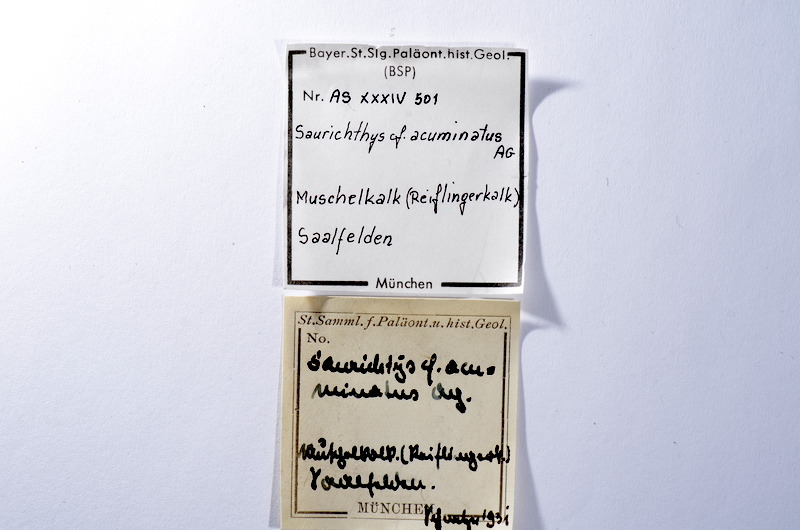 Bayer.St.Slg.Paläont.hist.Geol.
(BSP)
Nr. AS XXXIV 501
Saurichthys cf. acuminatus
AG
Muschelkalk (Reiflingerkalk)
Saalfelden
München
St.Samml.f.Paläont.u.hist.Geol.
No.
Saurichtys cf. acu-
minatus Ag.
Muschelkalk. (Reiflingerk.)
Saalfelden.
MÜNCHEN